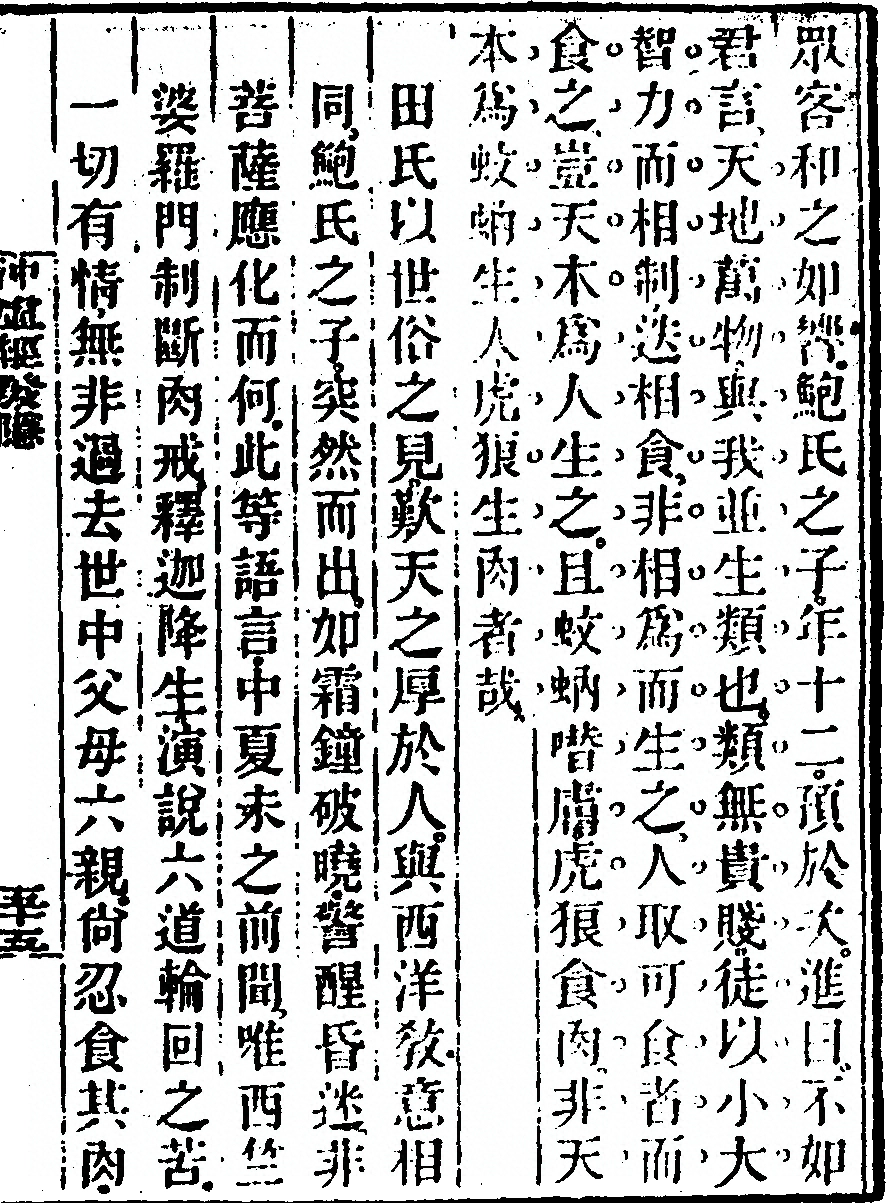 眾客和之如響鮑氏之子年十二預於次進曰不如
君言天地萬物與我並生類也類無貴賤徒以小大
智力而相制迭相食非相爲而生之人取可食者而
食之豈天本爲人生之且蚊蚋噆膚虎狼食肉非天
本爲蚊蚋生人虎狼生肉者哉
田氏以世俗之見歎天之厚於人與西洋敎意相
同鮑氏之子突然而出如霜鐘破曉警醒昏迷非
菩薩應化而何此等語言中夏未之前聞唯西竺
婆羅門制斷肉戒釋迦降生演說六道輪回之苦
一切有情無非過去世中父母六親尙忍食其肉
冲虛經發隱